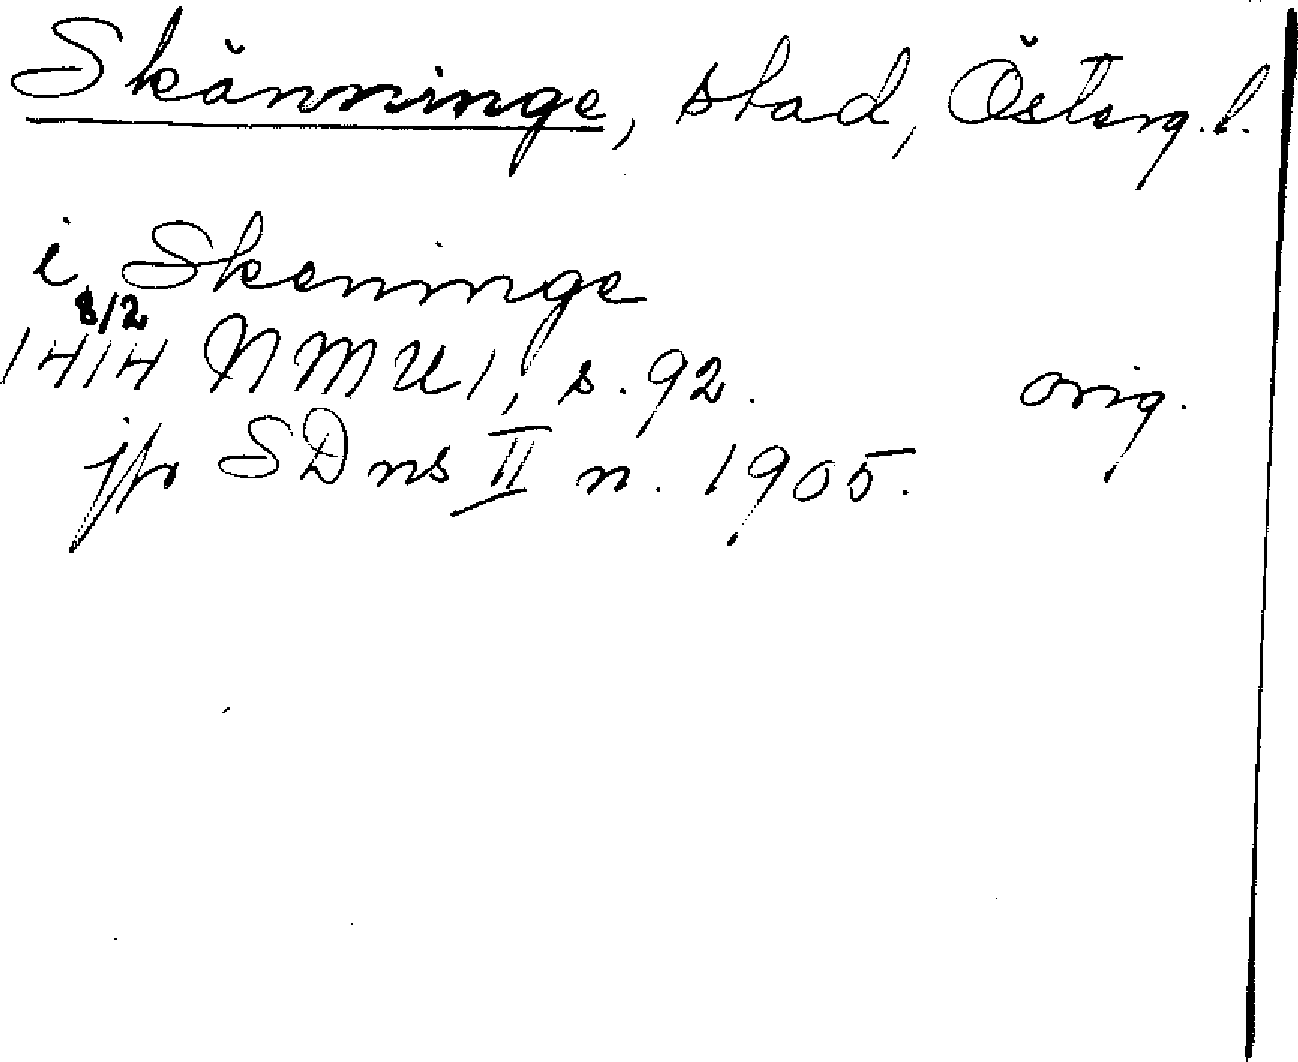 Skänninge, stad, Österg.l.
i Skeninge
8/2
1414 NMU1, s. 92. orig.
jfr SDns II n. 1905.